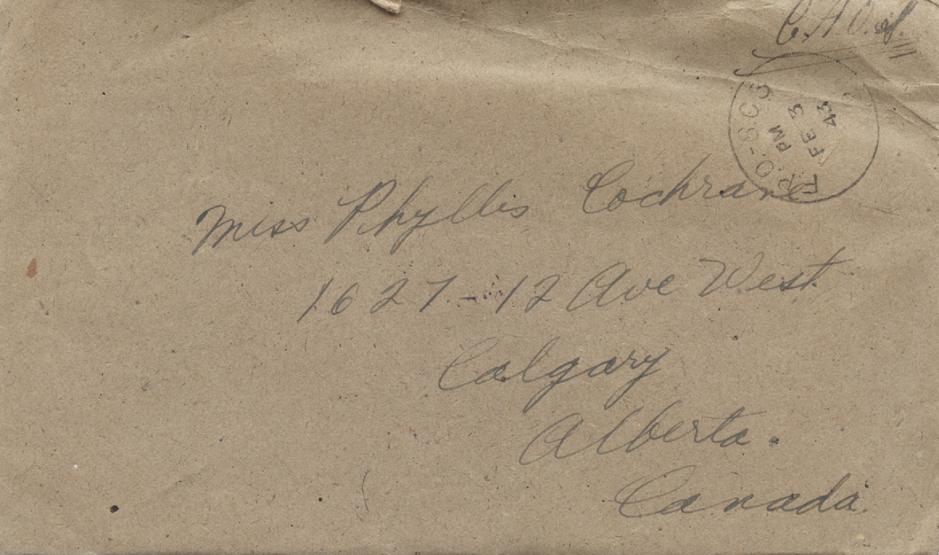 C.A.O.S.
F.P.O.-SC
PM
FE 3
43
Miss Phyllis Cochrane
1627-12 Ave West
Calgary
Alberta.
Canada.